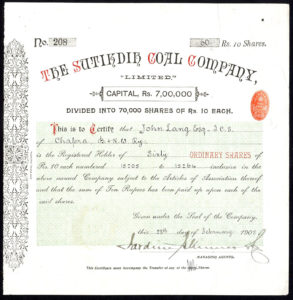 No. 208 60 Rs. 10 Shares.
THE SUTIKDIH COAL COMPANY,
"LIMITED."
CAPITAL, Rs. 7,00,000
DIVIDED INTO 70,000 SHARES OF Rs 10 EACH.
This is to Certify that John Lang Esq. I.C.S.
of Chapra B & N.W Ry.
is the Registered Holder of Sixty ORDINARY SHARES of
Rs 10 each numbered 15205 to 15264 inclusive in the
above named Company subject to the Articles of Association thereof
and that the sum of Ten Rupees has been paid up upon each of the
said shares.
Given under the Seal of the Company.
this day of February 1908
MANAGING AGENTS.
This Certificate must accompany the Transfer of any of the Shares.